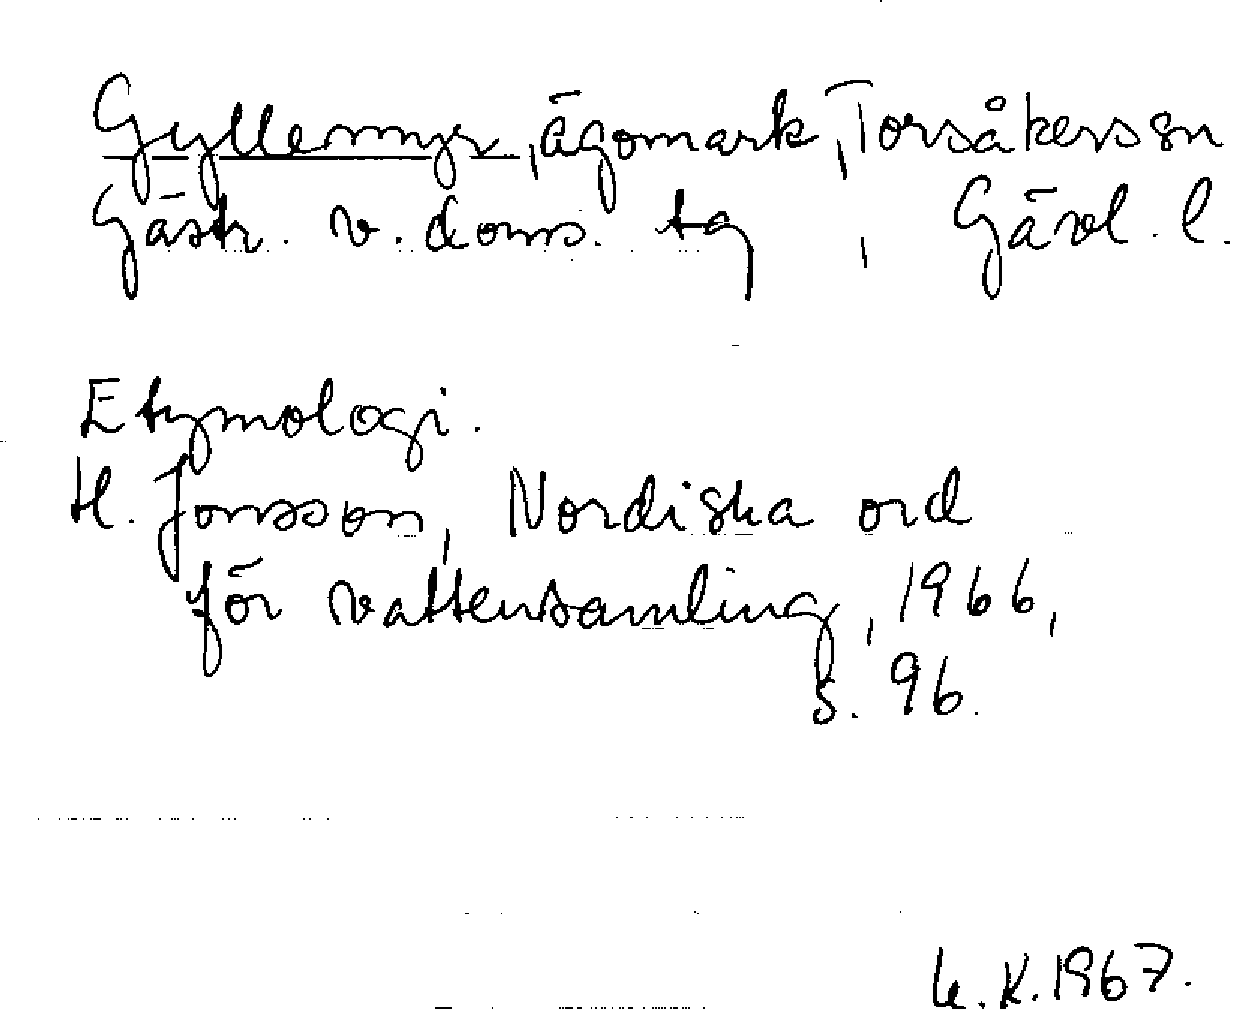 Gyllemyr, ägomark, Torsåkers sn
Gästr. v. doms. tg, Gävl. l.
Etymologi.
H. Jonsson, Nordiska ord
för vattensamling, 1966,
s. 96.
K. 1967.